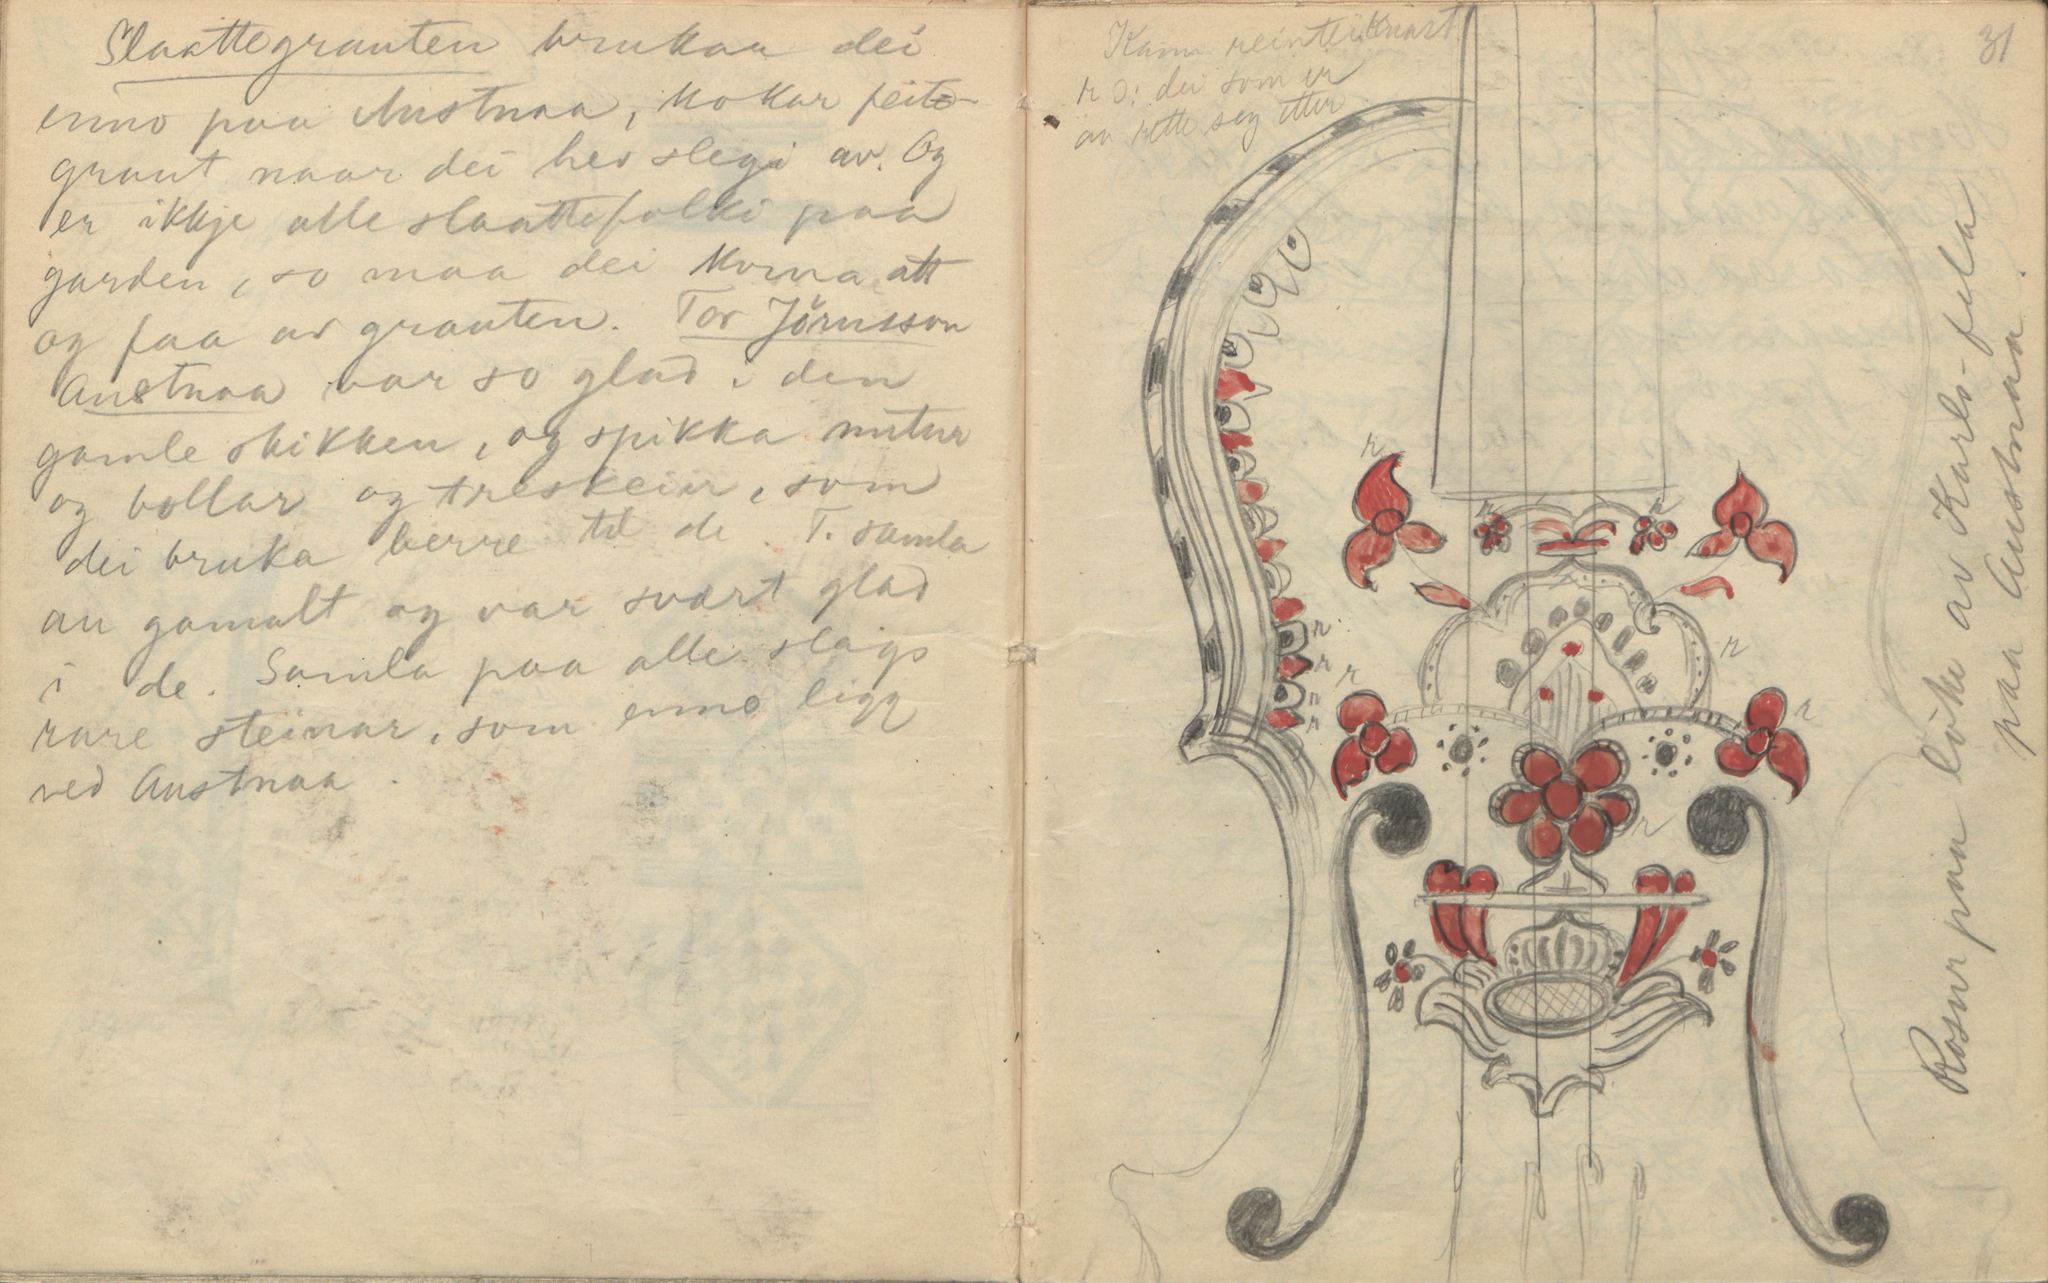 Slaattegrauten brukar dei
enno paa Austnaa, kokar feite-
graut naar dei hev slegi av. Og
er ikkje alle slaattefolki paa
garden, so maa dei koma att
og faa av grauten. Tor Jörnsson
Austnaa var so glad i den
gamle skikken, og spikka mutur
og bollar og treskeier, som
dei bruka berre til de. T. samla
au gamalt og var svært glad
i de. Samla paa alle slags
rare steinar, som enno ligg
ved Austnaa.
Kann reinteiknast.
r ɔ: dei som er
au rette seg etter
31
r
r
r
r
r
r
r
r
n
r
r
r
Rosur paa löke av Karls-fela
paa Austnaa.